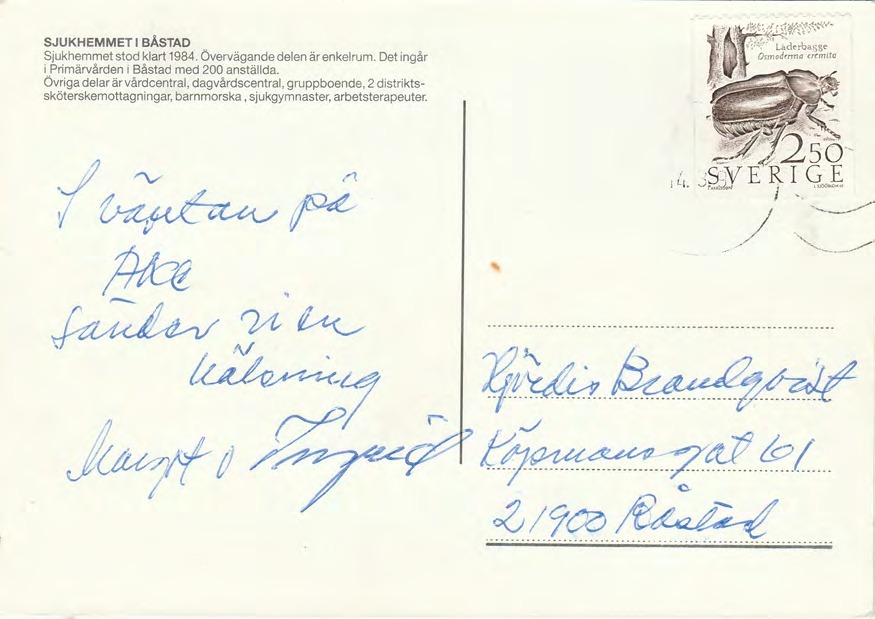 SJUKHEMMET I BÅSTAD
Sjukhemmet stod klart 1984. Övervägande delen är enkelrum. Det ingår
i Primärvården i Båstad med 200 anställda.
Övriga delar är vårdcentral, dagvårdscentral, gruppboende, 2 distrikts-
sköterskemottagningar, barnmorska, sjukgymnaster, arbetsterapeuter.
I väntan på
Åke
sänder vi en
hälsning
Margit o Ingrid
Läderbagge
Osmoderma eremita
2.50
SVERIGE
14.
Hjördis Brandqvist
Köpmansgat 61
21900 Båstad